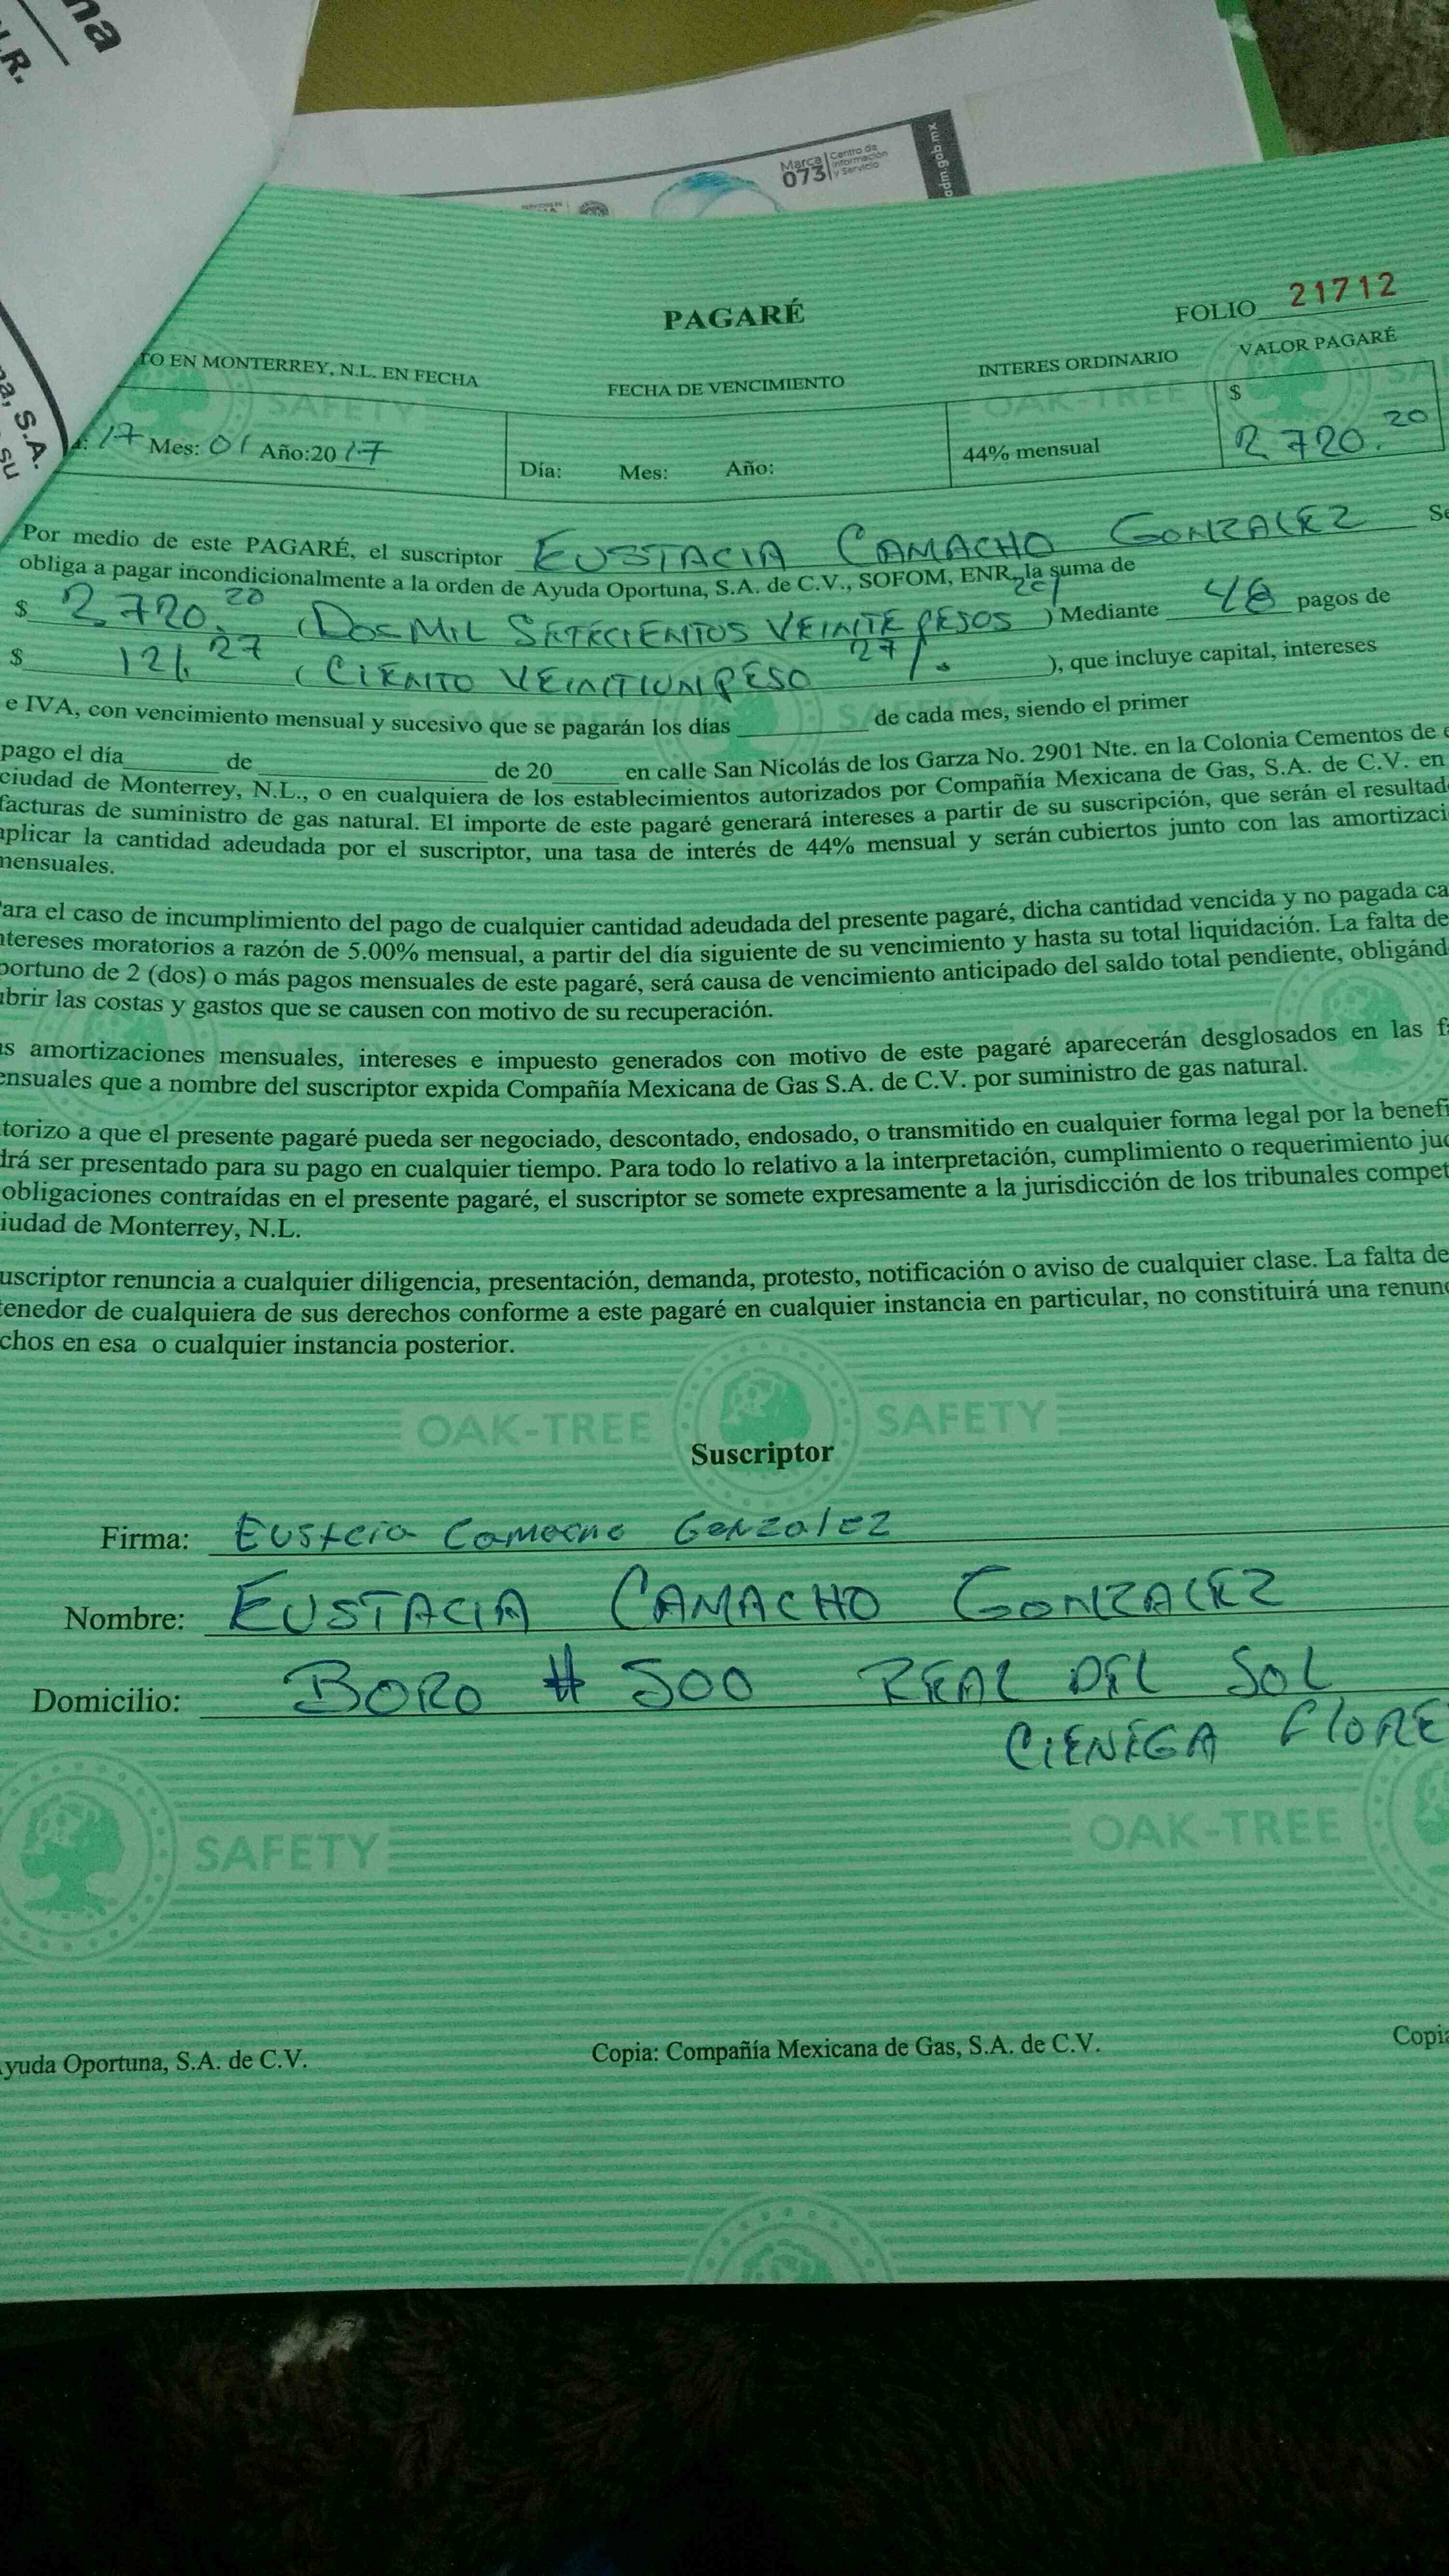 na
I.R.
Marca
073
Centro de
Información
y Servicio
adm.gob.mx
na, S.A.
su
PAGARÉ
FOLIO 21712
TO EN MONTERREY, N.L. EN FECHA
FECHA DE VENCIMIENTO
INTERES ORDINARIO
VALOR PAGARÉ
17 Mes: 01 Año:2017
Día: Mes: Año:
44% mensual
$ 2720.20
Por medio de este PAGARÉ, el suscriptor EUSTACIA CAMACHO GONZALEZ Se
obliga a pagar incondicionalmente a la orden de Ayuda Oportuna, S.A. de C.V., SOFOM, ENR, la suma de
$ 2,720.20 (DOS MIL SETECIENTOS VEINTE PESOS 20/ ) Mediante 48 pagos de
$ 121.27 (CIENTO VEINTIUN PESO 27/. ), que incluye capital, intereses
e IVA, con vencimiento mensual y sucesivo que se pagarán los días ________ de cada mes, siendo el primer
pago el día______ de ______________ de 20____ en calle San Nicolás de los Garza No. 2901 Nte. en la Colonia Cementos de e
ciudad de Monterrey, N.L., o en cualquiera de los establecimientos autorizados por Compañía Mexicana de Gas, S.A. de C.V. en
facturas de suministro de gas natural. El importe de este pagaré generará intereses a partir de su suscripción, que serán el resultad
aplicar la cantidad adeudada por el suscriptor, una tasa de interés de 44% mensual y serán cubiertos junto con las amortizaci
mensuales.
Para el caso de incumplimiento del pago de cualquier cantidad adeudada del presente pagaré, dicha cantidad vencida y no pagada ca
ntereses moratorios a razón de 5.00% mensual, a partir del día siguiente de su vencimiento y hasta su total liquidación. La falta de
portuno de 2 (dos) o más pagos mensuales de este pagaré, será causa de vencimiento anticipado del saldo total pendiente, obligánd
ubrir las costas y gastos que se causen con motivo de su recuperación.
as amortizaciones mensuales, intereses e impuesto generados con motivo de este pagaré aparecerán desglosados en las fa
ensuales que a nombre del suscriptor expida Compañía Mexicana de Gas S.A. de C.V. por suministro de gas natural.
torizo a que el presente pagaré pueda ser negociado, descontado, endosado, o transmitido en cualquier forma legal por la benefi
drá ser presentado para su pago en cualquier tiempo. Para todo lo relativo a la interpretación, cumplimiento o requerimiento jud
obligaciones contraídas en el presente pagaré, el suscriptor se somete expresamente a la jurisdicción de los tribunales compet
iudad de Monterrey, N.L.
uscriptor renuncia a cualquier diligencia, presentación, demanda, protesto, notificación o aviso de cualquier clase. La falta de
tenedor de cualquiera de sus derechos conforme a este pagaré en cualquier instancia en particular, no constituirá una renunc
chos en esa o cualquier instancia posterior.
OAK-TREE SAFETY
Suscriptor
Firma: Eustacia Camacho Gonzalez
Nombre: EUSTACIA CAMACHO GONZALEZ
Domicilio: BORO # 500 REAL DEL SOL
CIENEGA FLORE
SAFETY OAK-TREE
yuda Oportuna, S.A. de C.V.
Copia: Compañía Mexicana de Gas, S.A. de C.V.
Copia